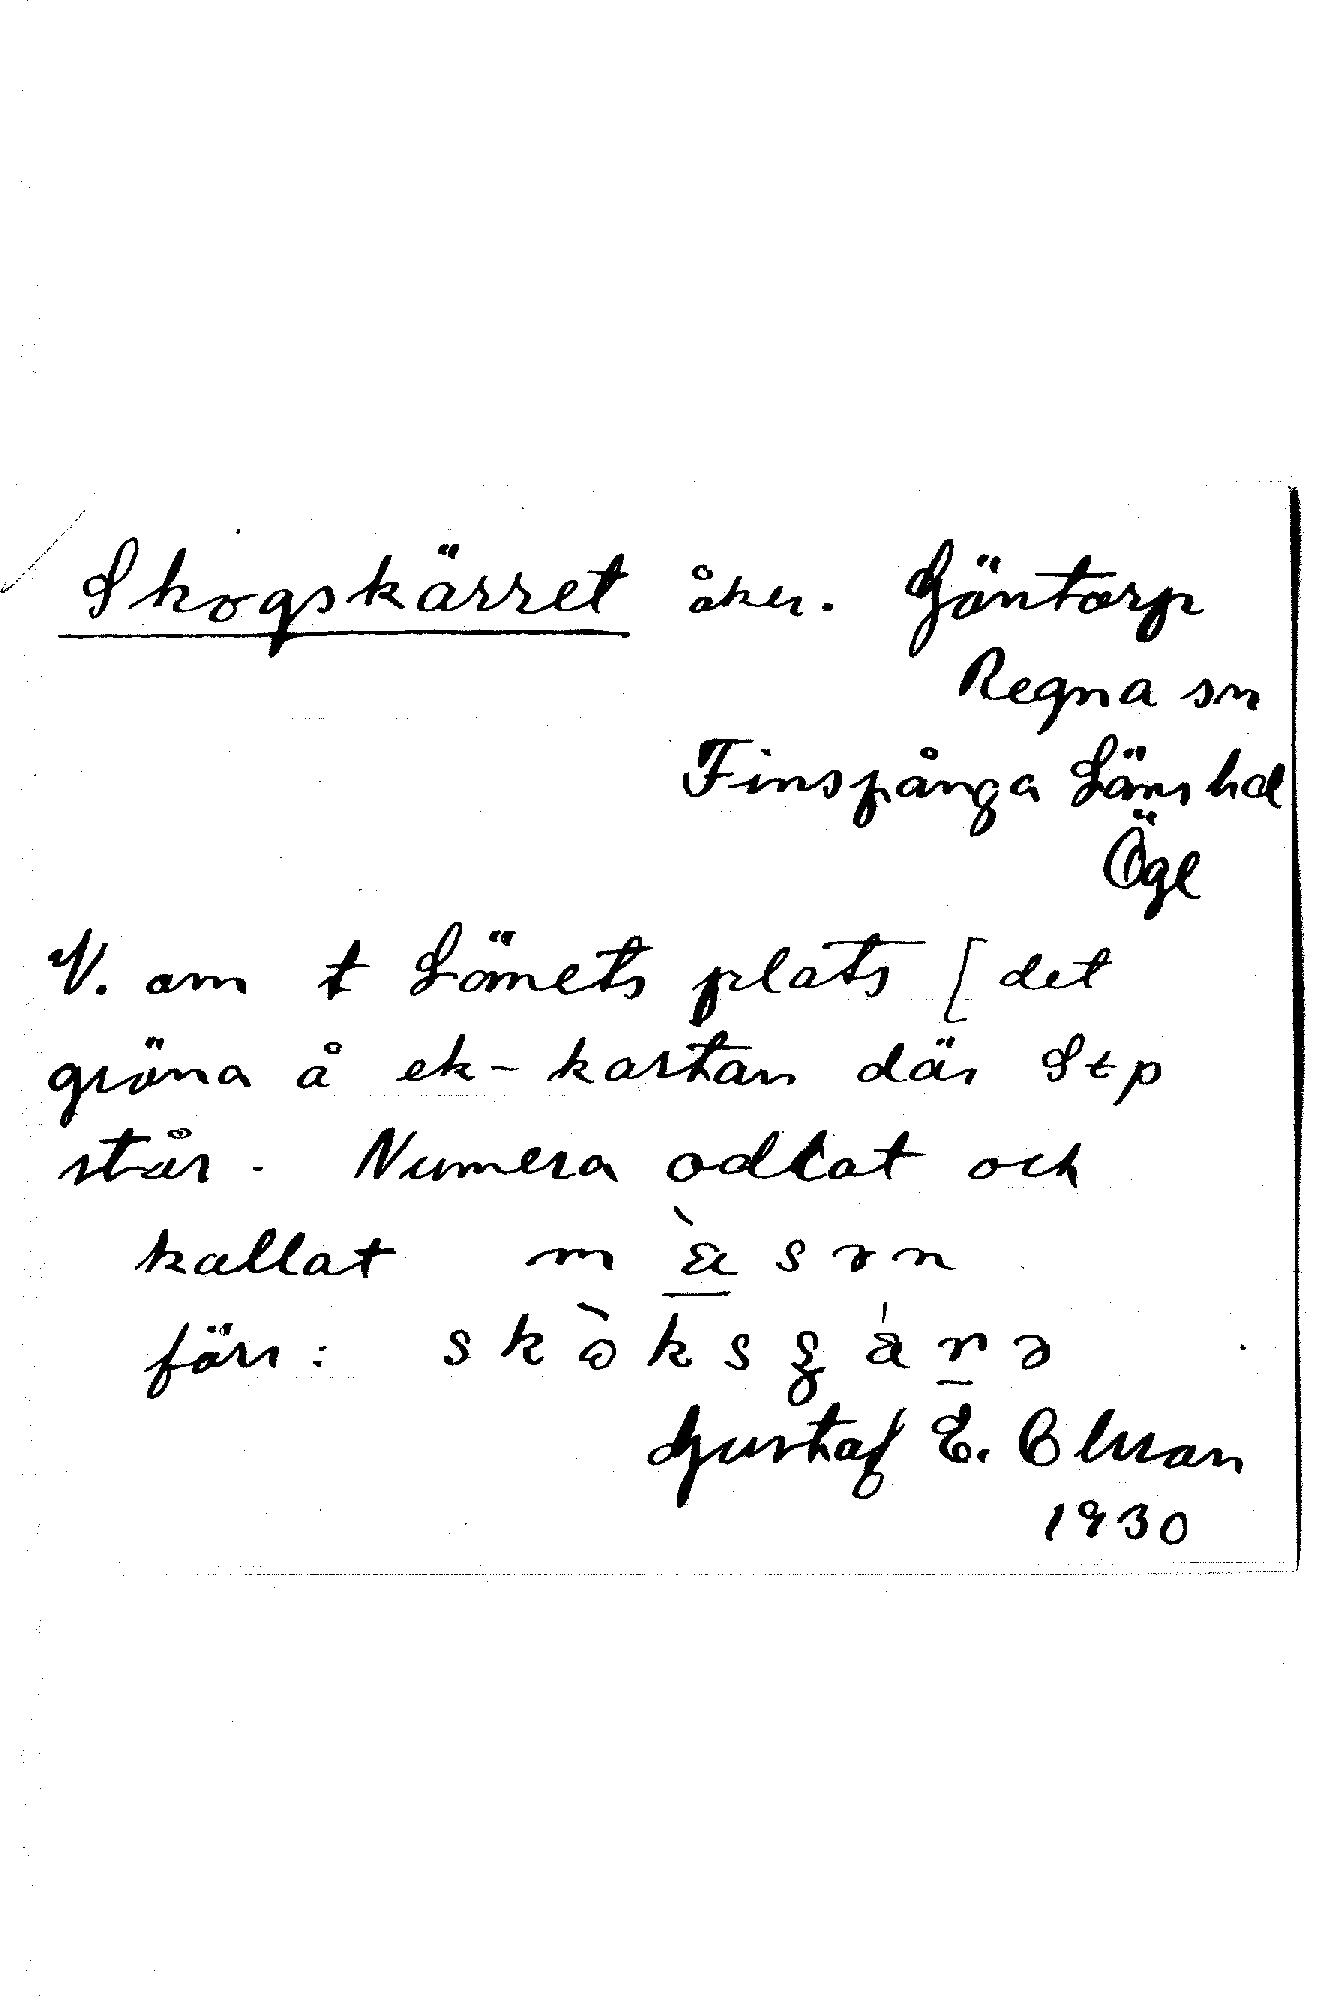 Skogskärret åker. Göntorp
Regna sn
Finspånga Läns hd
Ögl
V. om t Lömets plats [det
gröna å ek-kartan där Stp
står. Numera odlat och
kallat
förr:
Gustaf E.
1930